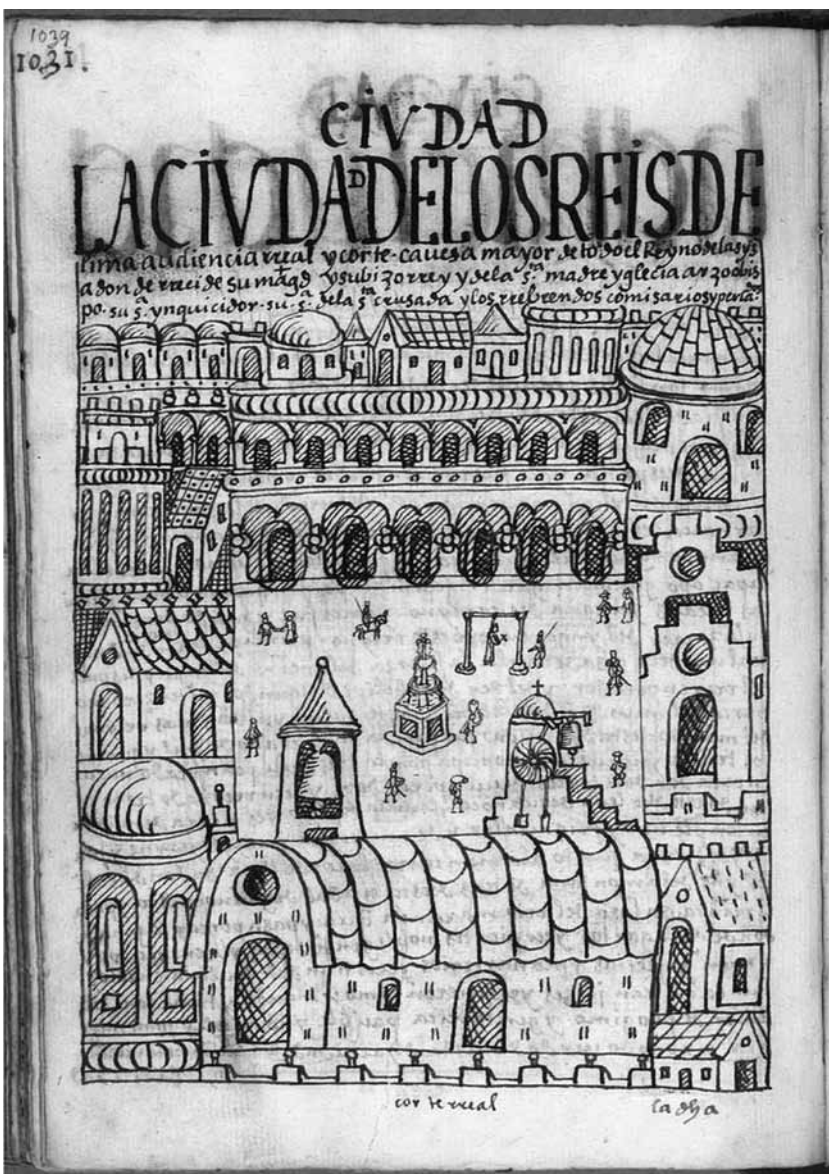 1039
1031.
CIVDAD
LA CIVDAD DE LOS REIS DE
lima audiencia rreal y corte. cauesa mayor de todo el Reyno de las yⁿs
adonde rrecide su magᵈ y su bizorrey y de la sᵗᵃ madre yglecia arzobis
po. su sᵃ ynquicidor. su sᵃ. de la sᵗᵃ crusada y los rreberendos comisarios y perlados
corte rreal